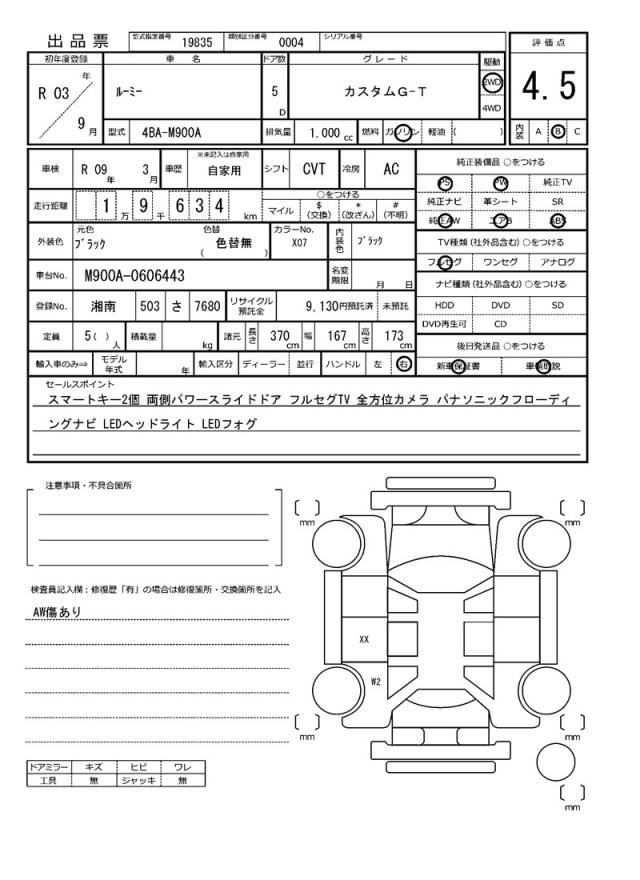 出品票
型式指定番号 19835 類別区分番号 0004 シリアル番号
初年度登録 車名 ドア数 グレード 駆動 評価点
R 03 年 9 月 ルーミー 5 D カスタムG-T 2WD 4WD 4.5
型式 4BA-M900A 排気量 1.000 cc 燃料 ガソリン 軽油 ( ) 内装 A B C
車検 R 09 年 3 月 車歴 ※未記入は自家用 自家用 シフト CVT 冷房 AC
純正装備品 ○をつける
PS PW 純正TV
純正ナビ 革シート SR
純正AW エアB ABS
走行距離 1 万 9 千 6 3 4 km ○をつける マイル $ (交換) * (改ざん) # (不明)
外装色 元色 ブラック 色替 ( 色替無 ) カラーNo. X07 内装色 ブラック
TV種類 (社外品含む) ○をつける
フルセグ ワンセグ アナログ
車台No. M900A-0606443 名変期限 月 日
ナビ種類 (社外品含む) ○をつける
HDD DVD SD
DVD再生可 CD
登録No. 湘南 503 さ 7680 リサイクル預託金 9,130円預託済 未預託
定員 5 ( ) 人 積載量 kg 諸元 長さ 370 cm 幅 167 cm 高さ 173 cm
後日発送品 ○をつける
新車保証書 車輌取説
輸入車のみ⇒ モデル年式 年 輸入区分 ディーラー 並行 ハンドル 左 右
セールスポイント
スマートキー2個 両側パワースライドドア フルセグTV 全方位カメラ パナソニックフローディ
ングナビ LEDヘッドライト LEDフォグ
注意事項・不具合箇所
検査員記入欄：修復歴「有」の場合は修復箇所・交換箇所を記入
AW傷あり
mm
mm
XX
W2
mm
mm
mm
ドアミラー キズ ヒビ ワレ
工具 無 ジャッキ 無